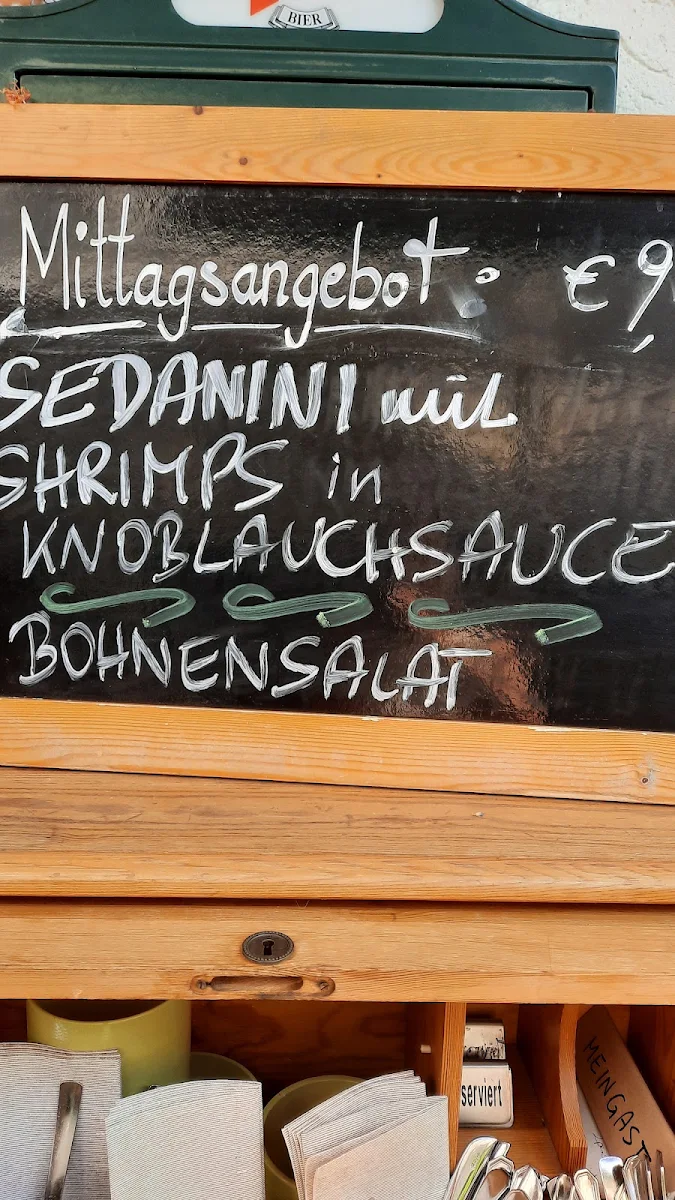 BIER
Mittagsangebot: € 9,
SEDANINI mit
SHRIMPS in
KNOBLAUCHSAUCE
BOHNENSALAT
serviert
MEINGAST